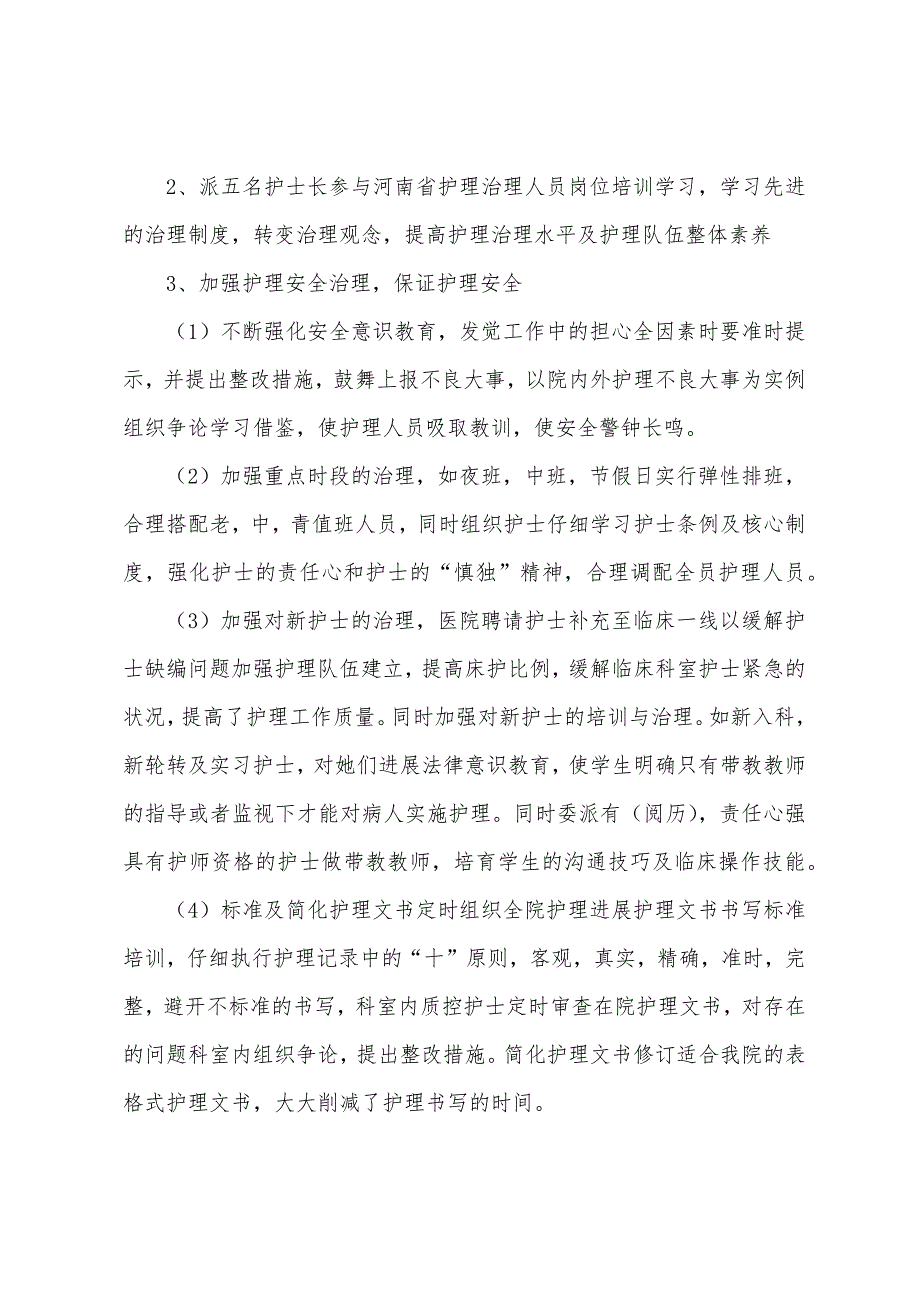 2、派五名护士长参与河南省护理治理人员岗位培训学习，学习先进
的治理制度，转变治理观念，提高护理治理水平及护理队伍整体素养
3、加强护理安全治理，保证护理安全
（1）不断强化安全意识教育，发觉工作中的担心全因素时要准时提
示，并提出整改措施，鼓舞上报不良大事，以院内外护理不良大事为实例
组织争论学习借鉴，使护理人员吸取教训，使安全警钟长鸣。
（2）加强重点时段的治理，如夜班，中班，节假日实行弹性排班，
合理搭配老，中，青值班人员，同时组织护士仔细学习护士条例及核心制
度，强化护士的责任心和护士的“慎独”精神，合理调配全员护理人员。
（3）加强对新护士的治理，医院聘请护士补充至临床一线以缓解护
士缺编问题加强护理队伍建立，提高床护比例，缓解临床科室护士紧急的
状况，提高了护理工作质量。同时加强对新护士的培训与治理。如新入科，
新轮转及实习护士，对她们进展法律意识教育，使学生明确只有带教教师
的指导或者监视下才能对病人实施护理。同时委派有（阅历），责任心强
具有护师资格的护士做带教教师，培育学生的沟通技巧及临床操作技能。
（4）标准及简化护理文书定时组织全院护理进展护理文书书写标准
培训，仔细执行护理记录中的“十”原则，客观，真实，精确，准时，完
整，避开不标准的书写，科室内质控护士定时审查在院护理文书，对存在
的问题科室内组织争论，提出整改措施。简化护理文书修订适合我院的表
格式护理文书，大大削减了护理书写的时间。